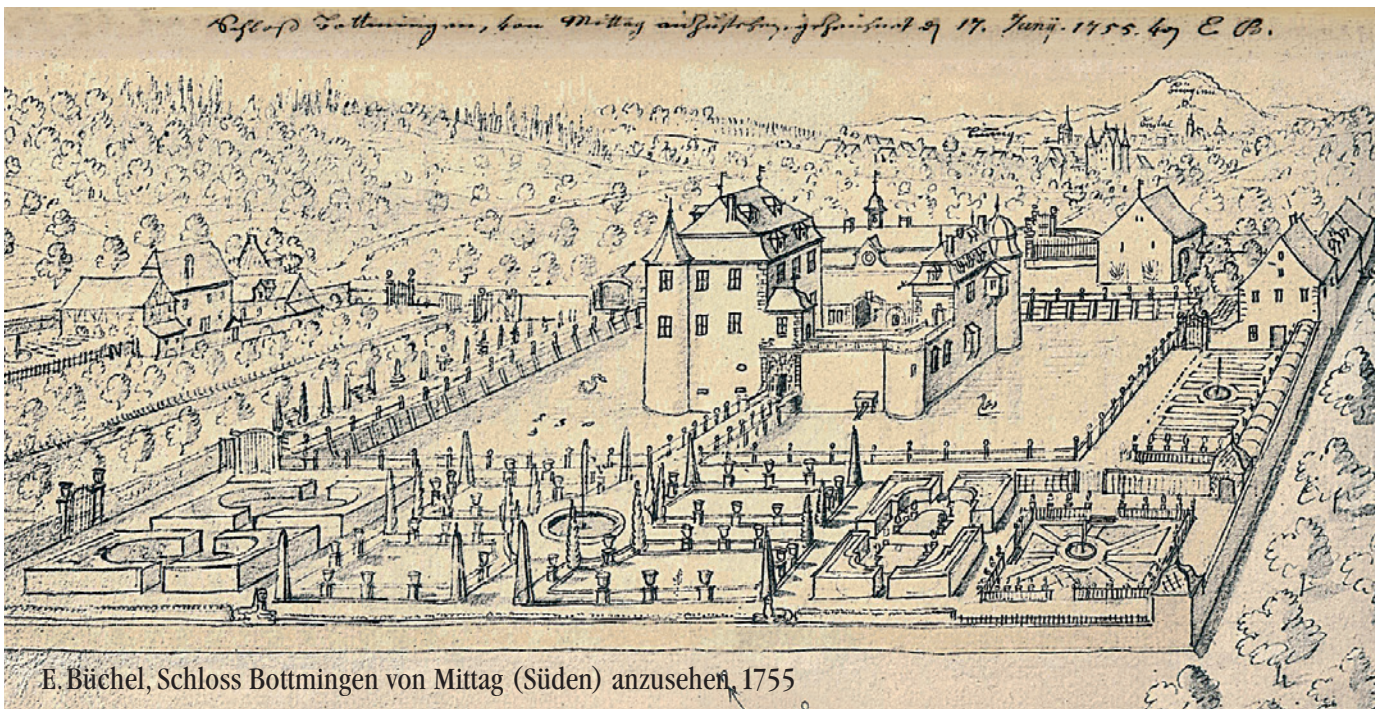 Schloß Bottmingen, von Mittag anzusehen, gezeichnet d 17. Junÿ. 1755. von E B.
E. Büchel, Schloss Bottmingen von Mittag (Süden) anzusehen, 1755